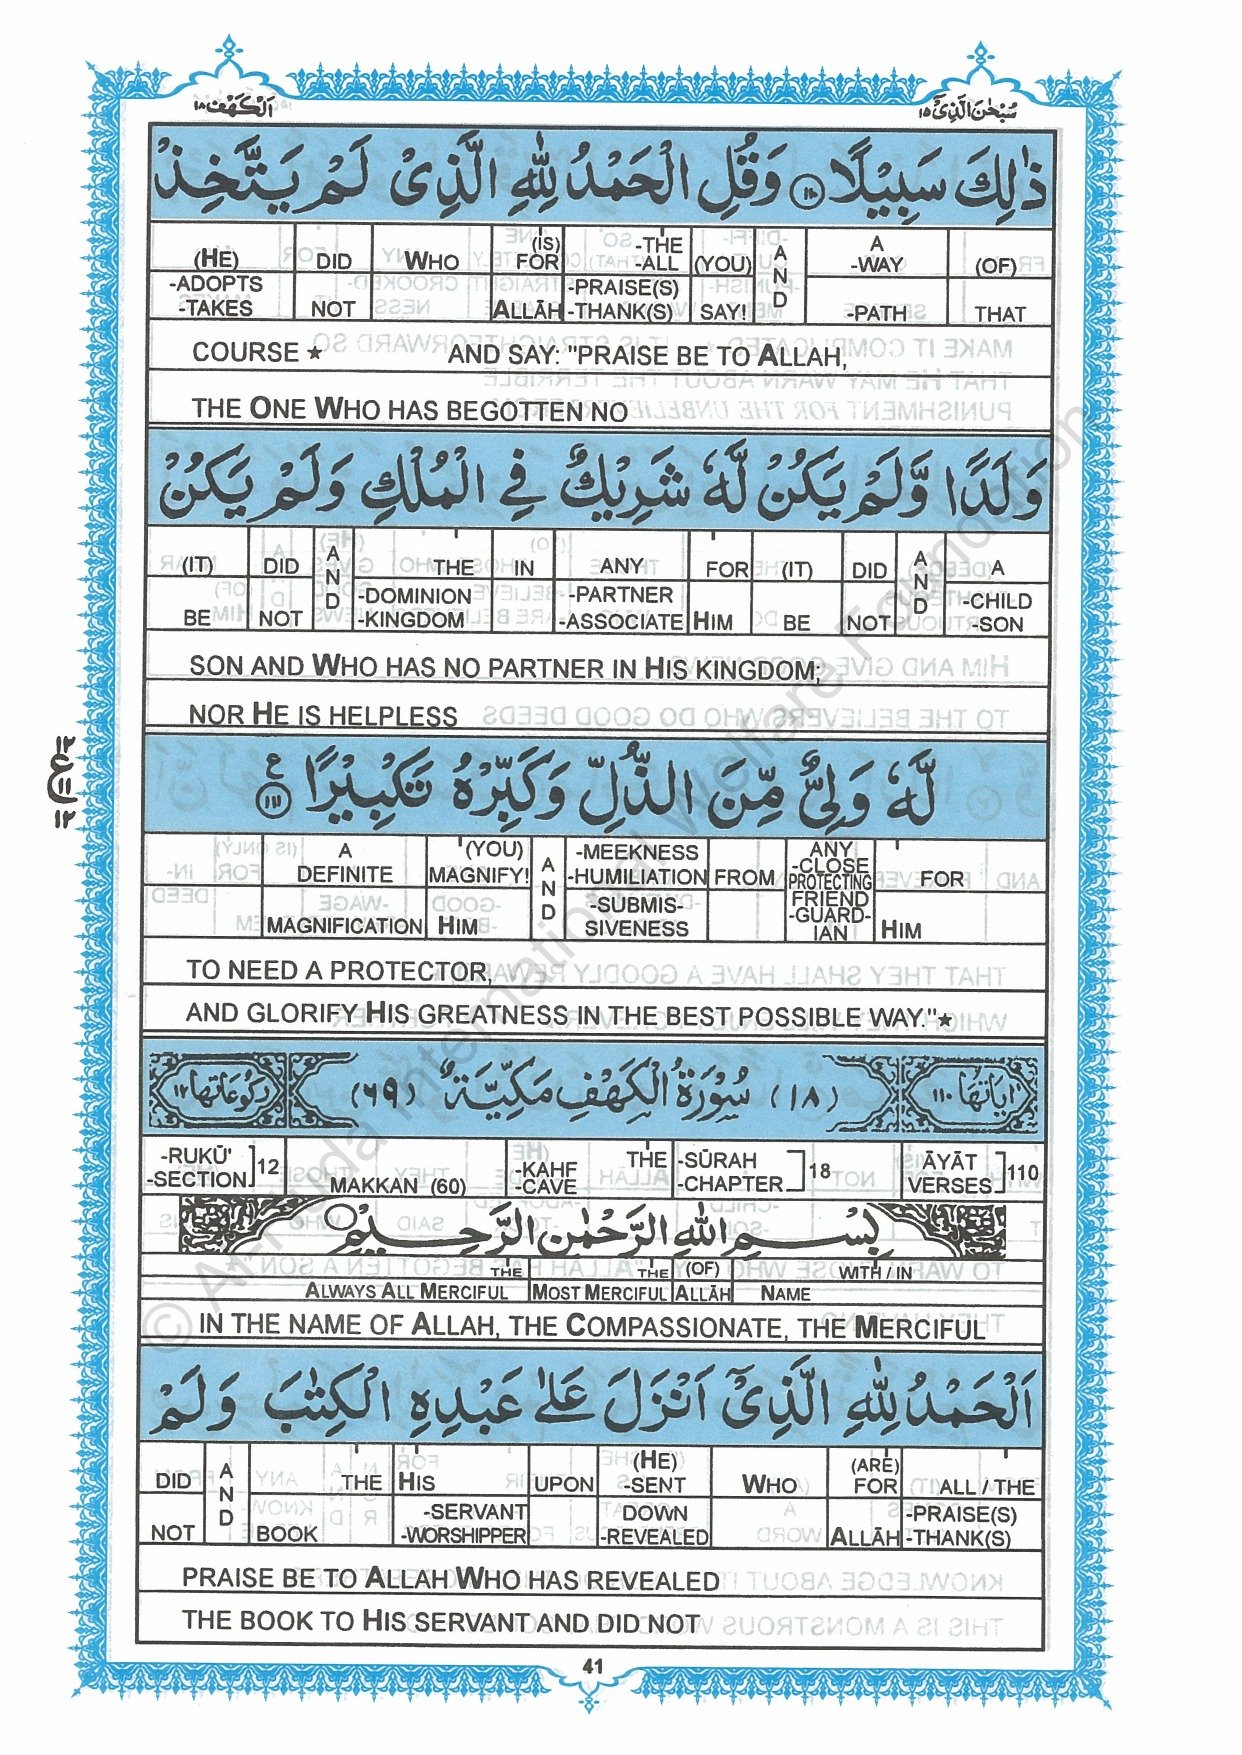 اَلْكَهْف ١٨
سُبْحٰنَ الَّذِىْٓ ١٥
ذٰلِكَ سَبِيْلًا ۝١١٠ وَقُلِ الْحَمْدُ لِلّٰهِ الَّذِىْ لَمْ يَتَّخِذْ
(HE) DID WHO (IS) FOR -THE -ALL (YOU) AND A -WAY (OF)
-ADOPTS -TAKES NOT ALLĀH -PRAISE(S) -THANK(S) SAY! -PATH THAT
COURSE ★ AND SAY: "PRAISE BE TO ALLAH,
THE ONE WHO HAS BEGOTTEN NO
وَلَدًا وَّلَمْ يَكُنْ لَّهٗ شَرِيْكٌ فِى الْمُلْكِ وَلَمْ يَكُنْ
(IT) DID AND THE IN ANY FOR (IT) DID AND A
BE NOT -DOMINION -KINGDOM -PARTNER -ASSOCIATE HIM BE NOT -CHILD -SON
SON AND WHO HAS NO PARTNER IN HIS KINGDOM;
NOR HE IS HELPLESS
لَّهٗ وَلِىٌّ مِّنَ الذُّلِّ وَكَبِّرْهُ تَكْبِيْرًا ۝١١١ ع
١٢
ع ١١
١٢
A DEFINITE (YOU) MAGNIFY! AND -MEEKNESS -HUMILIATION FROM ANY -CLOSE PROTECTING FOR
MAGNIFICATION HIM -SUBMIS- SIVENESS FRIEND -GUARD- IAN HIM
TO NEED A PROTECTOR,
AND GLORIFY HIS GREATNESS IN THE BEST POSSIBLE WAY."★
اٰيَاتُهَا ١١٠ (١٨) سُوْرَةُ الْكَهْفِ مَكِّيَّةٌ (٦٩) رُكُوْعَاتُهَا ١٢
-RUKŪ' -SECTION ]12 MAKKAN (60) -KAHF -CAVE THE -SŪRAH -CHAPTER ]18 ĀYĀT VERSES ]110
بِسْمِ اللّٰهِ الرَّحْمٰنِ الرَّحِيْمِ
THE THE (OF) WITH / IN
ALWAYS ALL MERCIFUL MOST MERCIFUL ALLĀH NAME
IN THE NAME OF ALLAH, THE COMPASSIONATE, THE MERCIFUL
اَلْحَمْدُ لِلّٰهِ الَّذِىْٓ اَنْزَلَ عَلٰى عَبْدِهِ الْكِتٰبَ وَلَمْ
DID AND THE HIS UPON (HE) -SENT WHO (ARE) FOR ALL / THE
NOT BOOK -SERVANT -WORSHIPPER DOWN -REVEALED ALLĀH -PRAISE(S) -THANK(S)
PRAISE BE TO ALLAH WHO HAS REVEALED
THE BOOK TO HIS SERVANT AND DID NOT
41